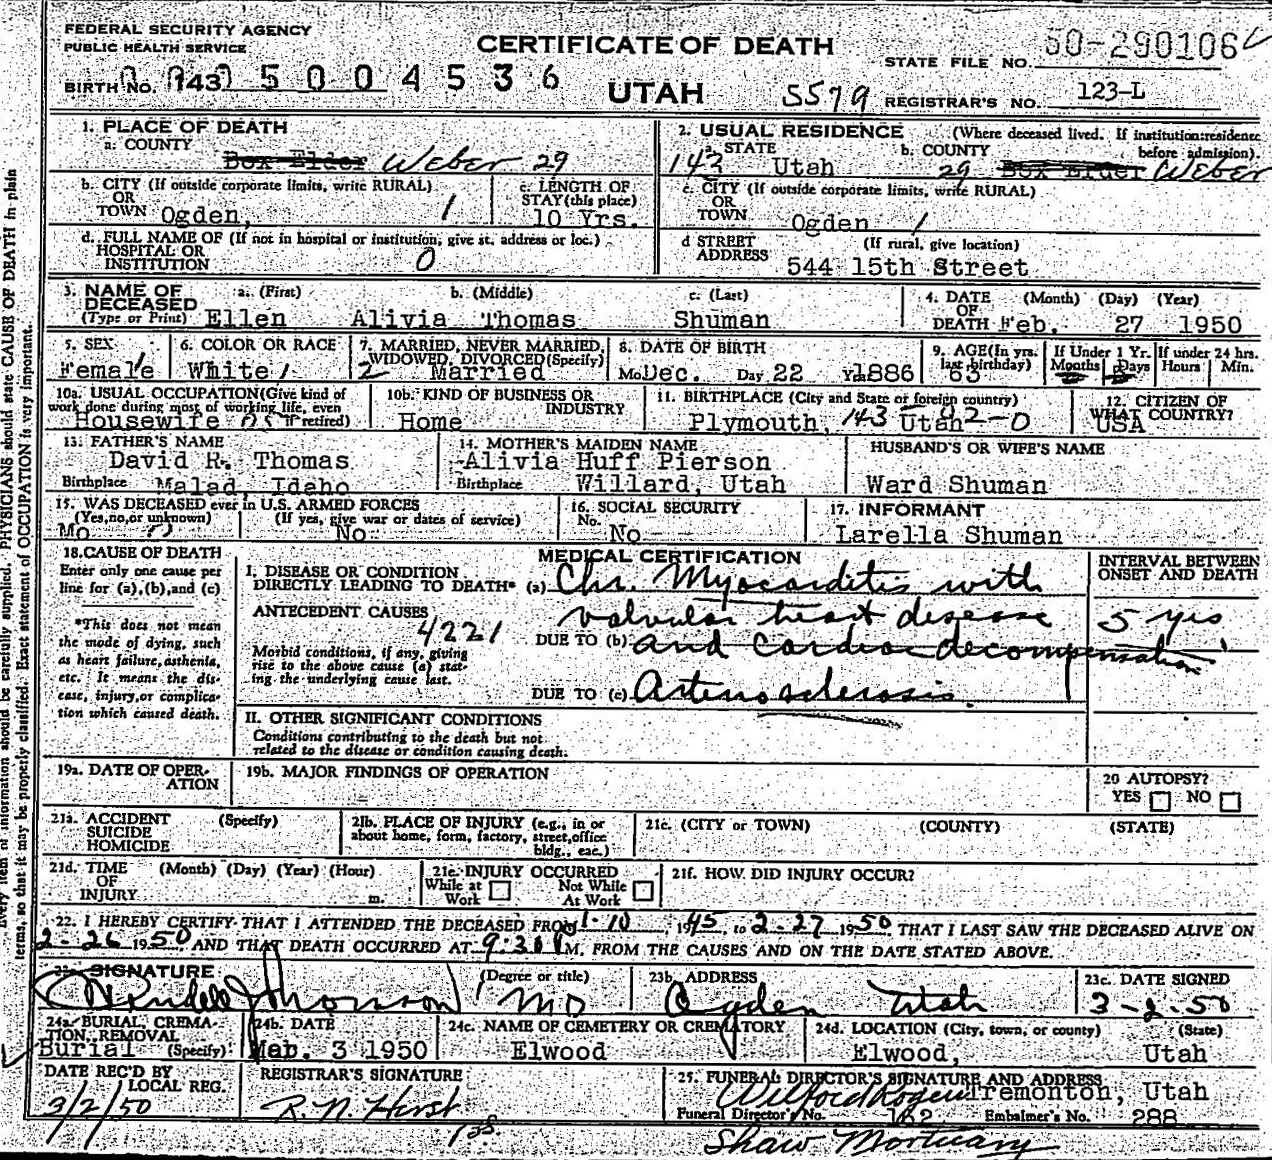 FEDERAL SECURITY AGENCY
PUBLIC HEALTH SERVICE
CERTIFICATE OF DEATH
STATE FILE NO. 50-290106
BIRTH NO. 143 5 0 0 4 5 3 6
UTAH 5579 REGISTRAR'S NO. 123-L
1. PLACE OF DEATH
a. COUNTY Box Elder Weber 29
2. USUAL RESIDENCE (Where deceased lived. If institution:residence before admission).
a. STATE 143 Utah b. COUNTY 29 Box Elder Weber
b. CITY (If outside corporate limits, write RURAL)
OR
TOWN Ogden, 1
c. LENGTH OF
STAY (this place)
10 Yrs.
c. CITY (If outside corporate limits, write RURAL)
OR
TOWN Ogden 1
d. FULL NAME OF (If not in hospital or institution, give st. address or loc.)
HOSPITAL OR
INSTITUTION 0
d STREET (If rural, give location)
ADDRESS 544 15th Street
3. NAME OF a. (First) b. (Middle) c. (Last)
DECEASED
(Type or Print) Ellen Alivia Thomas Shuman
4. DATE (Month) (Day) (Year)
OF
DEATH Feb. 27 1950
5. SEX
Female 1
6. COLOR OR RACE
White 1
7. MARRIED, NEVER MARRIED,
WIDOWED, DIVORCED (Specify)
2 Married
8. DATE OF BIRTH
Mo Dec. Day 22 Yr. 1886
9. AGE (In yrs.
last birthday)
63
If Under 1 Yr.
Months Days
If under 24 hrs.
Hours Min.
10a. USUAL OCCUPATION (Give kind of
work done during most of working life, even
if retired)
Housewife
10b. KIND OF BUSINESS OR
INDUSTRY
Home
11. BIRTHPLACE (City and State or foreign country)
Plymouth, 143 Utah 42-0
12. CITIZEN OF
WHAT COUNTRY?
USA
13. FATHER'S NAME
David R. Thomas
Birthplace Malad, Idaho
14. MOTHER'S MAIDEN NAME
Alivia Huff Pierson
Birthplace Willard, Utah
HUSBAND'S OR WIFE'S NAME
Ward Shuman
15. WAS DECEASED ever in U.S. ARMED FORCES
(Yes, no, or unknown) (If yes, give war or dates of service)
No 0 No
16. SOCIAL SECURITY
No. No
17. INFORMANT
Larella Shuman
18. CAUSE OF DEATH
Enter only one cause per
line for (a), (b), and (c)
*This does not mean
the mode of dying, such
as heart failure, asthenia,
etc. It means the dis-
ease, injury, or complica-
tion which caused death.
MEDICAL CERTIFICATION
INTERVAL BETWEEN
ONSET AND DEATH
I. DISEASE OR CONDITION
DIRECTLY LEADING TO DEATH* (a) Chr. Myocarditis with
valvular heart disease 5 yrs
ANTECEDENT CAUSES 4221
DUE TO (b) and cardiac decompensation
Morbid conditions, if any, giving
rise to the above cause (a) stat-
ing the underlying cause last.
DUE TO (c) Arteriosclerosis.
II. OTHER SIGNIFICANT CONDITIONS
Conditions contributing to the death but not
related to the disease or condition causing death.
19a. DATE OF OPER-
ATION
19b. MAJOR FINDINGS OF OPERATION
20 AUTOPSY?
YES NO
21a. ACCIDENT (Specify)
SUICIDE
HOMICIDE
21b. PLACE OF INJURY (e.g., in or
about home, form, factory, street, office
bldg., eac.)
21c. (CITY or TOWN) (COUNTY) (STATE)
21d. TIME (Month) (Day) (Year) (Hour)
OF
INJURY m.
21e. INJURY OCCURRED
While at Work Not While At Work
21f. HOW DID INJURY OCCUR?
22. I HEREBY CERTIFY THAT I ATTENDED THE DECEASED FROM 1-10, 1945, to 2-27 1950 THAT I LAST SAW THE DECEASED ALIVE ON
2-26 1950 AND THAT DEATH OCCURRED AT 9:30 P M. FROM THE CAUSES AND ON THE DATE STATED ABOVE.
23. SIGNATURE (Degree or title)
Wendell J Thomson MD
23b. ADDRESS
Ogden Utah
23c. DATE SIGNED
3-2-50
24a. BURIAL, CREMA-
TION, REMOVAL
(Specify) Burial
24b. DATE
Mar. 3 1950
24c. NAME OF CEMETERY OR CREMATORY
Elwood
24d. LOCATION (City, town, or county) (State)
Elwood, Utah
DATE REC'D BY
LOCAL REG.
3/2/50
REGISTRAR'S SIGNATURE
R. N. Hirst
25. FUNERAL DIRECTOR'S SIGNATURE AND ADDRESS
Wilford Rogers Tremonton, Utah
Funeral Director's No. 162 Embalmer's No. 288
Shaw Mortuary
Every item of information should be carefully supplied. PHYSICIANS should state CAUSE OF DEATH in plain
terms, so that it may be properly classified. Exact statement of OCCUPATION is very important.